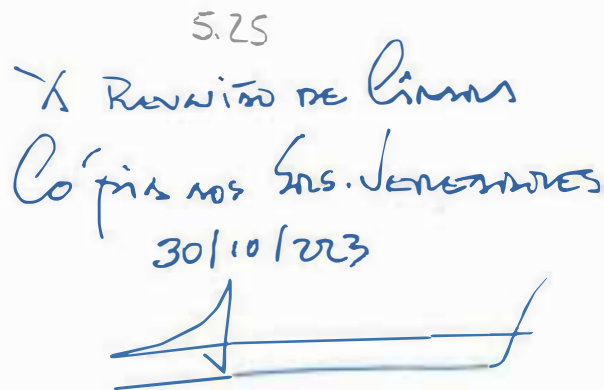 5.25
À Reunião de Câmara
Cópia aos Srs. Vereadores
30/10/2023